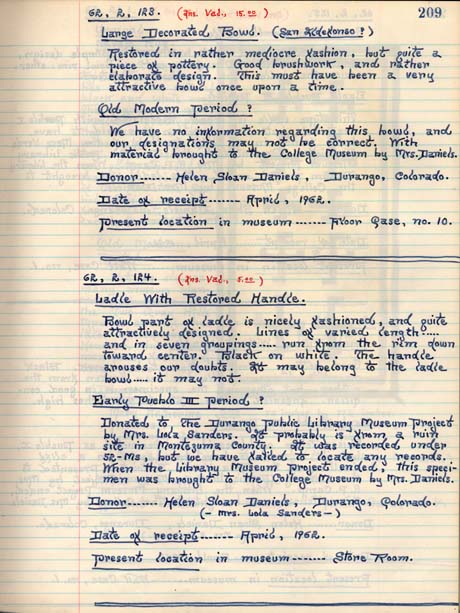 209
62, 2, 123. (Ins. Val., 15.00)
Large Decorated Bowl. (San Ildefonso?)
Restored in rather mediocre fashion, but quite a
piece of pottery. Good brushwork, and rather
elaborate design. This must have been a very
attractive bowl once upon a time.
Old Modern period?
We have no information regarding this bowl, and
our designations may not be correct. With
material brought to the College Museum by Mrs. Daniels.
Donor....... Helen Sloan Daniels, Durango, Colorado.
Date of receipt....... April, 1962.
Present location in museum....... Floor Case, no. 10.
62, 2, 124. (Ins. Val., 5.00)
Ladle With Restored Handle.
Bowl part of ladle is nicely fashioned, and quite
attractively designed. Lines of varied length.....
and in seven groupings..... run from the rim down
toward center. Black on white. The handle
arouses our doubts. It may belong to the ladle
bowl..... it may not.
Early Pueblo III period?
Donated to the Durango Public Library Museum Project
by Mrs. Lola Sanders. It probably is from a ruin
site in Montezuma County. It was recorded under
52-Ms, but we have failed to locate any records.
When the Library Museum Project ended, this speci-
men was brought to the College Museum by Mrs. Daniels.
Donor....... Helen Sloan Daniels, Durango, Colorado.
(- Mrs. Lola Sanders -)
Date of receipt....... April, 1962.
Present location in museum....... Store Room.